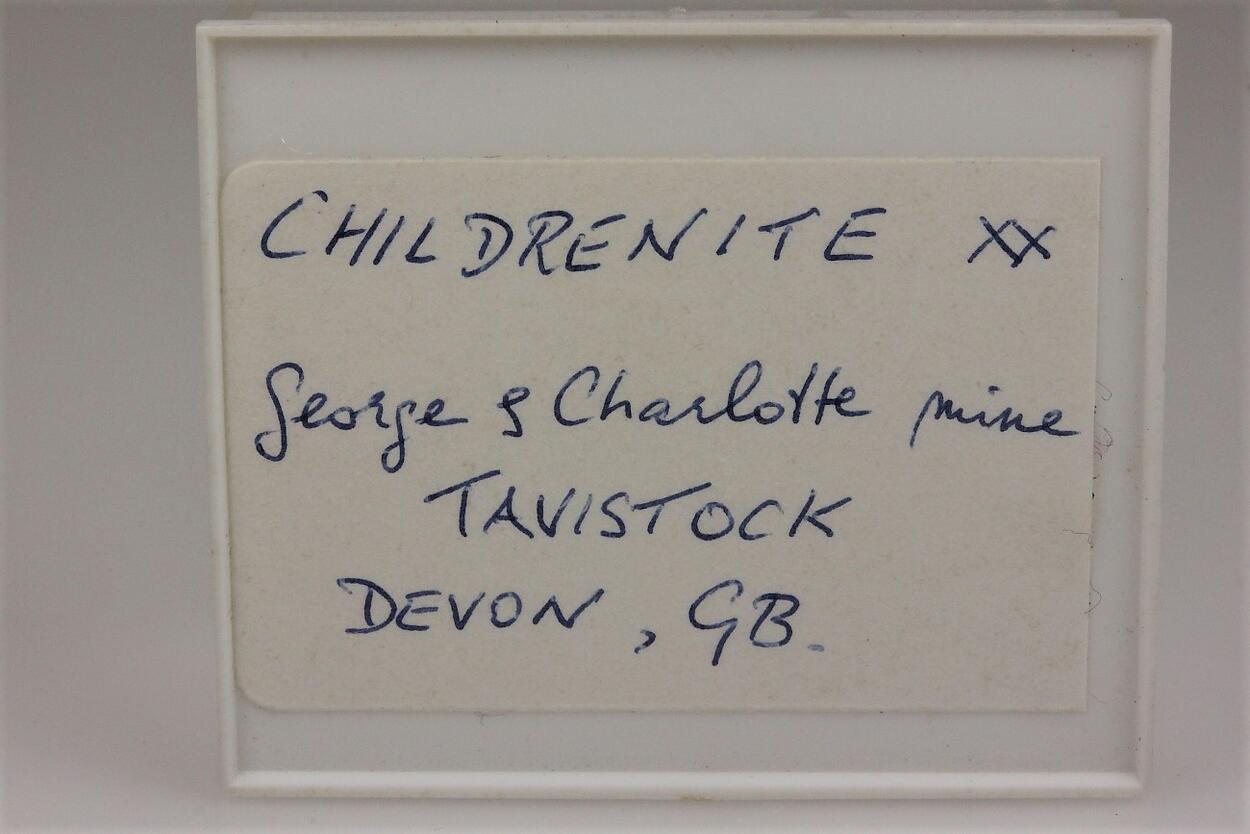 CHILDRENITE XX
George & Charlotte mine
TAVISTOCK
DEVON, GB.